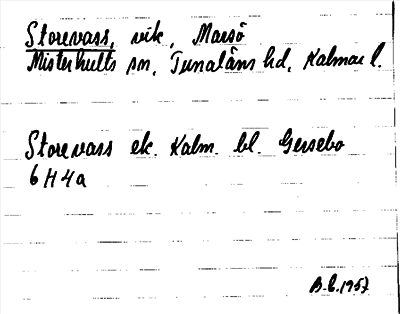 Storevass, vik, Marsö
Misterhults sn, Tunaläns hd, Kalmar l.
Storevass ek. Kalm. bl. Gersebo
6 H 4a
B.C. 1957